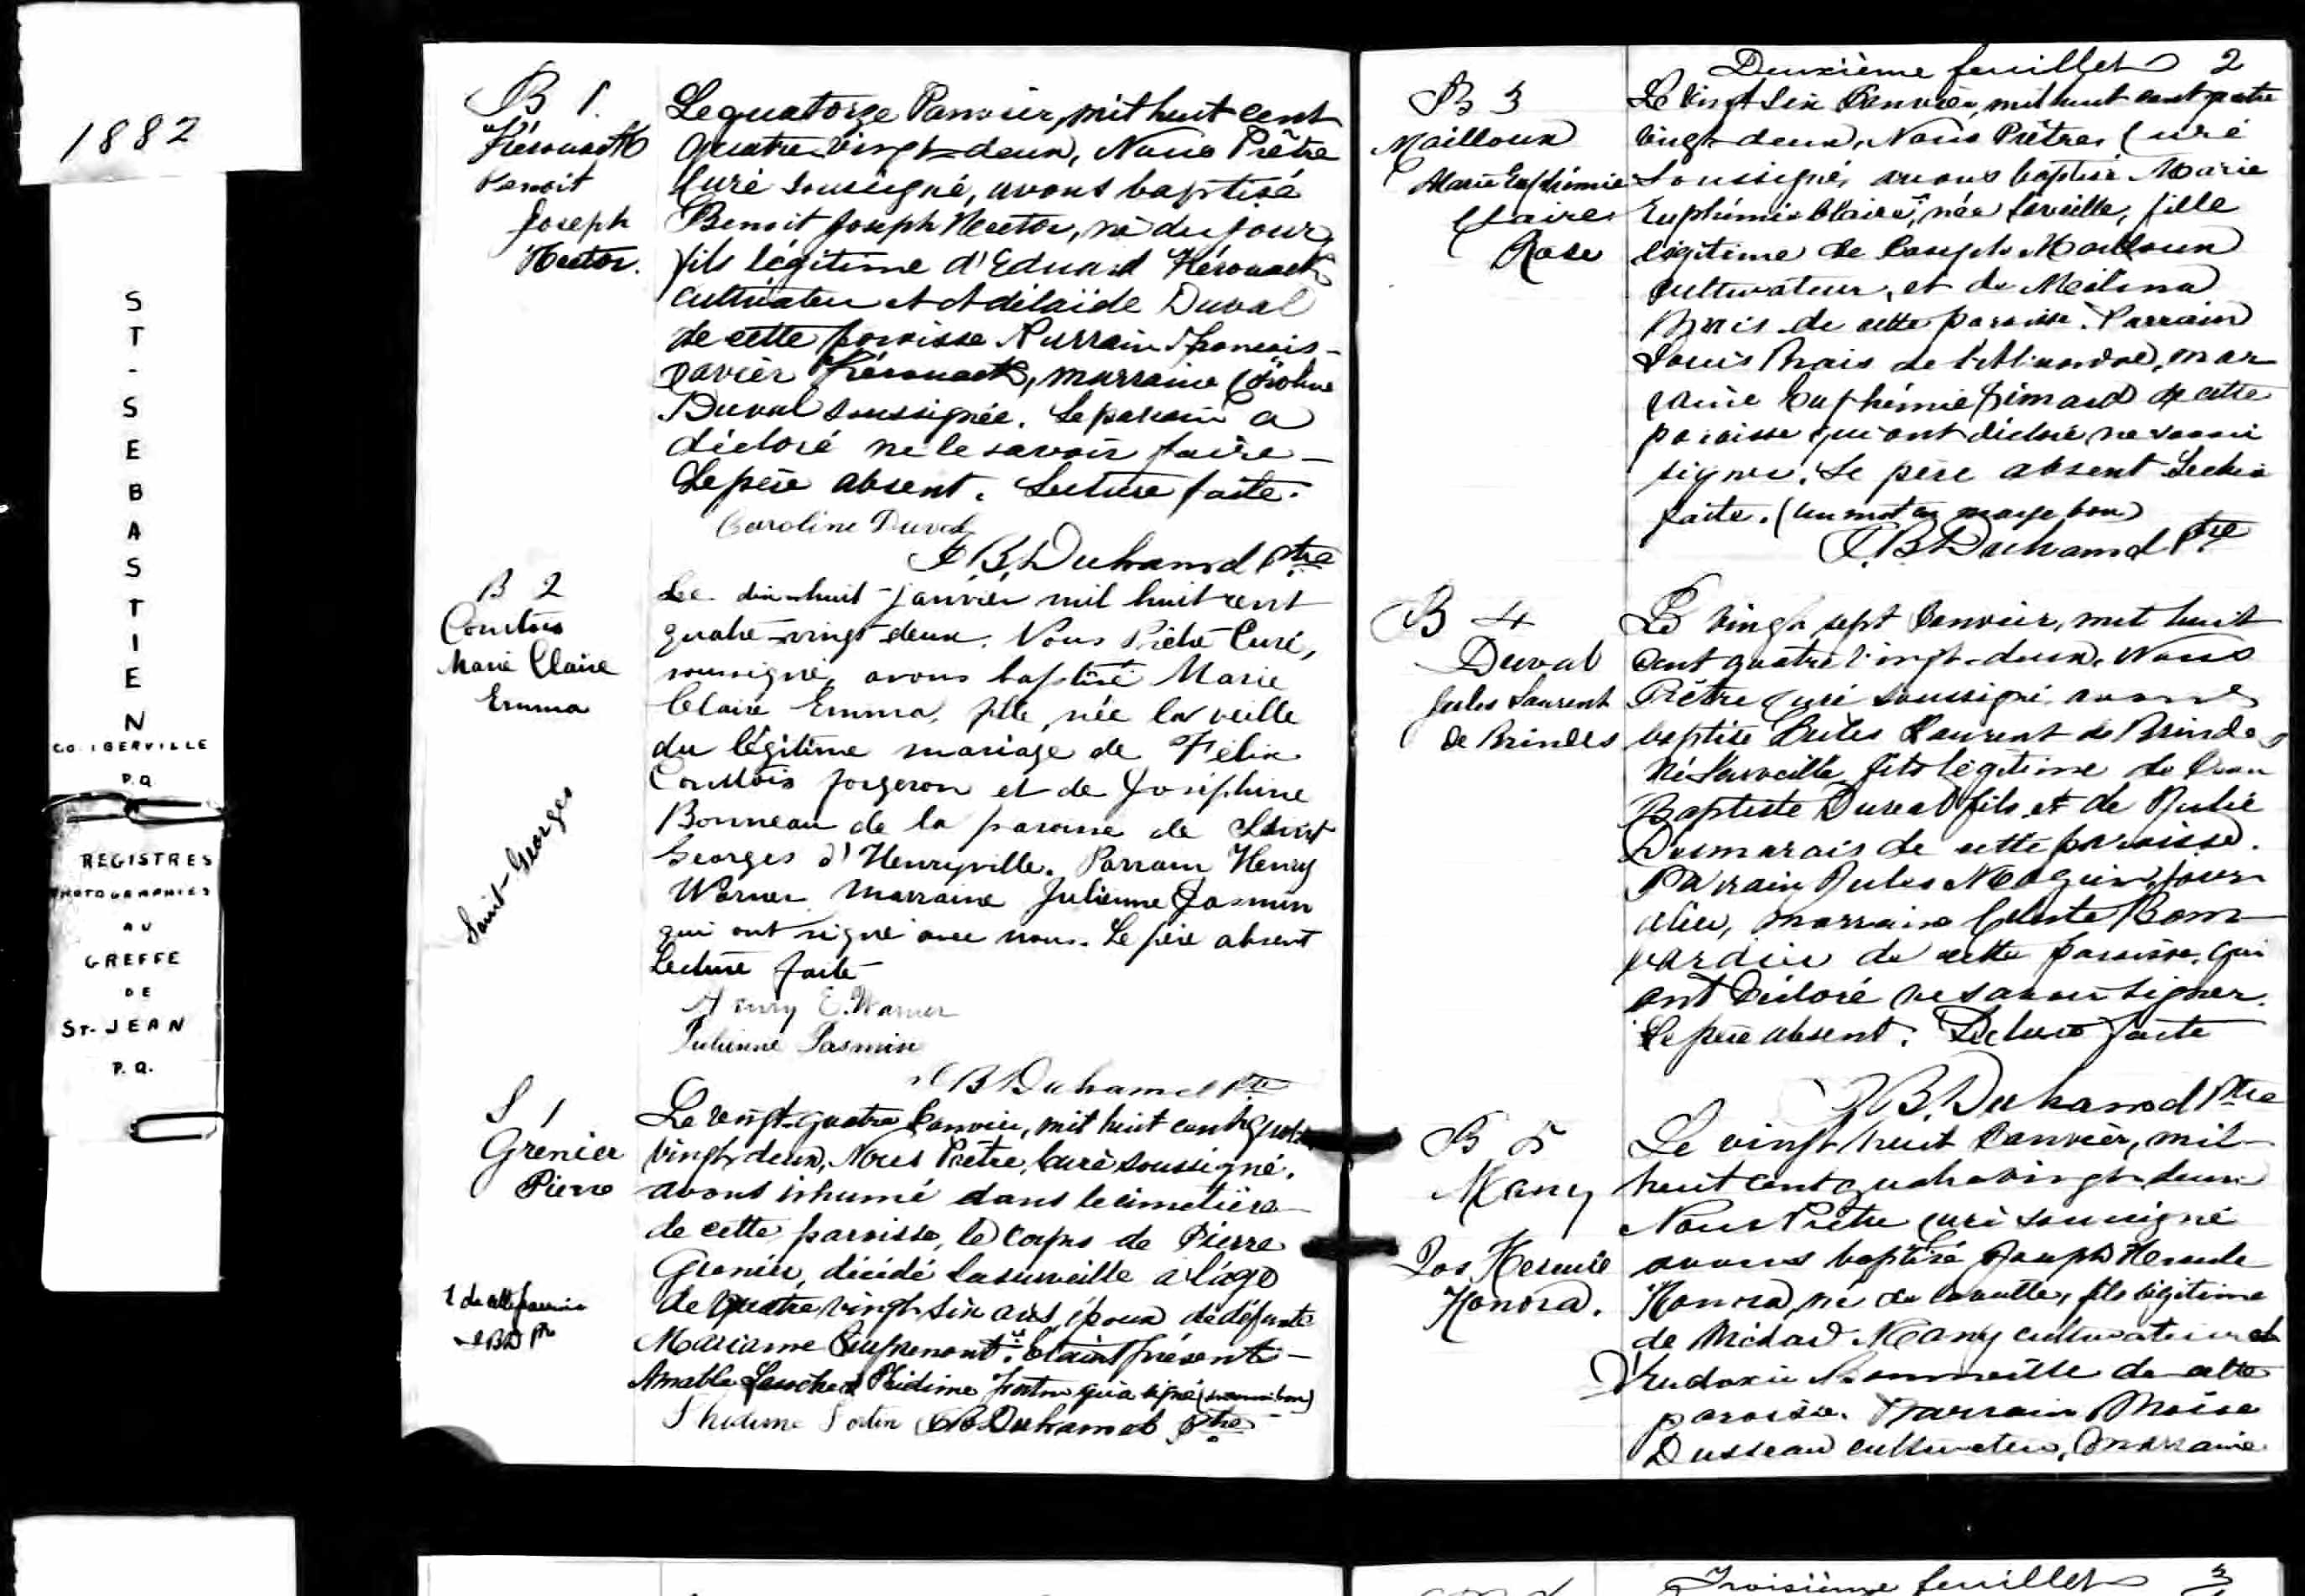 1882
ST-SEBASTIEN
CO. IBERVILLE
P.Q.
REGISTRES
PHOTOGRAPHIES
AU
GREFFE
DE
ST-JEAN
P.Q.
B 1.
Kérouack
Benoit
Joseph
Hector.
Le quatorze Janvier, mil huit cent
quatre-vingt-deux, Nous Prêtre
Curé soussigné, avons baptisé
Benoit Joseph Hector, né du jour,
fils légitime d'Eduard Kérouack
cultivateur et d'Adélaïde Duval
de cette paroisse Parrain François-
Xavier Kérouack, marraine Caroline
Duval soussignée. Le parrain a
déclaré ne le savoir faire-
Le père absent. Lecture faite.
Caroline Duval
J. B. Duhamel Ptre
B 2
Courtois
Marie Claire
Emma
Saint-Georges
Le dix-huit janvier mil huit cent
quatre-vingt-deux. Nous Prêtre Curé,
soussigné, avons baptisé Marie
Claire Emma, fille, née la veille
du légitime mariage de Félix
Courtois forgeron et de Joséphine
Bonneau de la paroisse de Saint
Georges d'Henryville. Parrain Henry
Warner Marraine Julienne Jasmin
qui ont signé avec nous. Le père absent
Lecture faite
Henry E. Warner
Julienne Jasmin
J B Duhamel Ptre
S 1
Grenier
Pierre
Le vingt-quatre Janvier, mil huit cent quatre
vingt-deux, Nous Prêtre, Curé soussigné,
avons inhumé dans le cimetière
de cette paroisse, le corps de Pierre
Grenier, décédé la surveille à l'âge
de quatre vingt six ans, époux de défunte
Marianne Etaient présents-
Amable qui a signé
J B Duhamel ptre
1 de cette paroisse
JBD Ptr
Deuxième feuillet 2
B 3
Mailloux
Marie Euphémie
Claire
Rose
Le vingt six Janvier, mil huit cent quatre
vingt-deux, Nous Prêtre, Curé
Soussigné, avons baptisé Marie
Euphémie Claire, née la veille, fille
légitime de Joseph Mailloux
cultivateur, et de Mélina
Brais de cette paroisse. Parrain
Louis Brais de mar
raine Euphémie Simard de cette
paroisse qui ont déclaré ne savoir
signer. Le père absent Lecture
faite. (un mot en marge bon)
J. B. Duhamel Ptre
B 4
Duval
Jules Laurent
de Brindes
Le vingt sept Janvier, mil huit
cent quatre vingt-deux. Nous
Prêtre Curé soussigné avons
baptisé Jules Laurent de Brindes
né la veille, fils légitime de Jean
Baptiste Duval fils et de Julie
Desmarais de cette paroisse.
Parrain Jules journ
alier, marraine Celeste Bom
bardier de cette paroisse, qui
ont déclaré ne savoir signer.
Le père absent. Lecture faite
J B. Duhamel Ptre
B 5
Many
Jos Hercule
Honora.
Le vingt huit Janvier, mil
huit cent quatre vingt-deux
Nous Prêtre curé soussigné
avons baptisé Joseph Hercule
Honora, né de la veille, fils légitime
de Médard Many cultivateur et
d'Eudoxie de cette
paroisse. Parrain Moïse
Dusseau cultivateur, marraine
Troisième feuillet 3